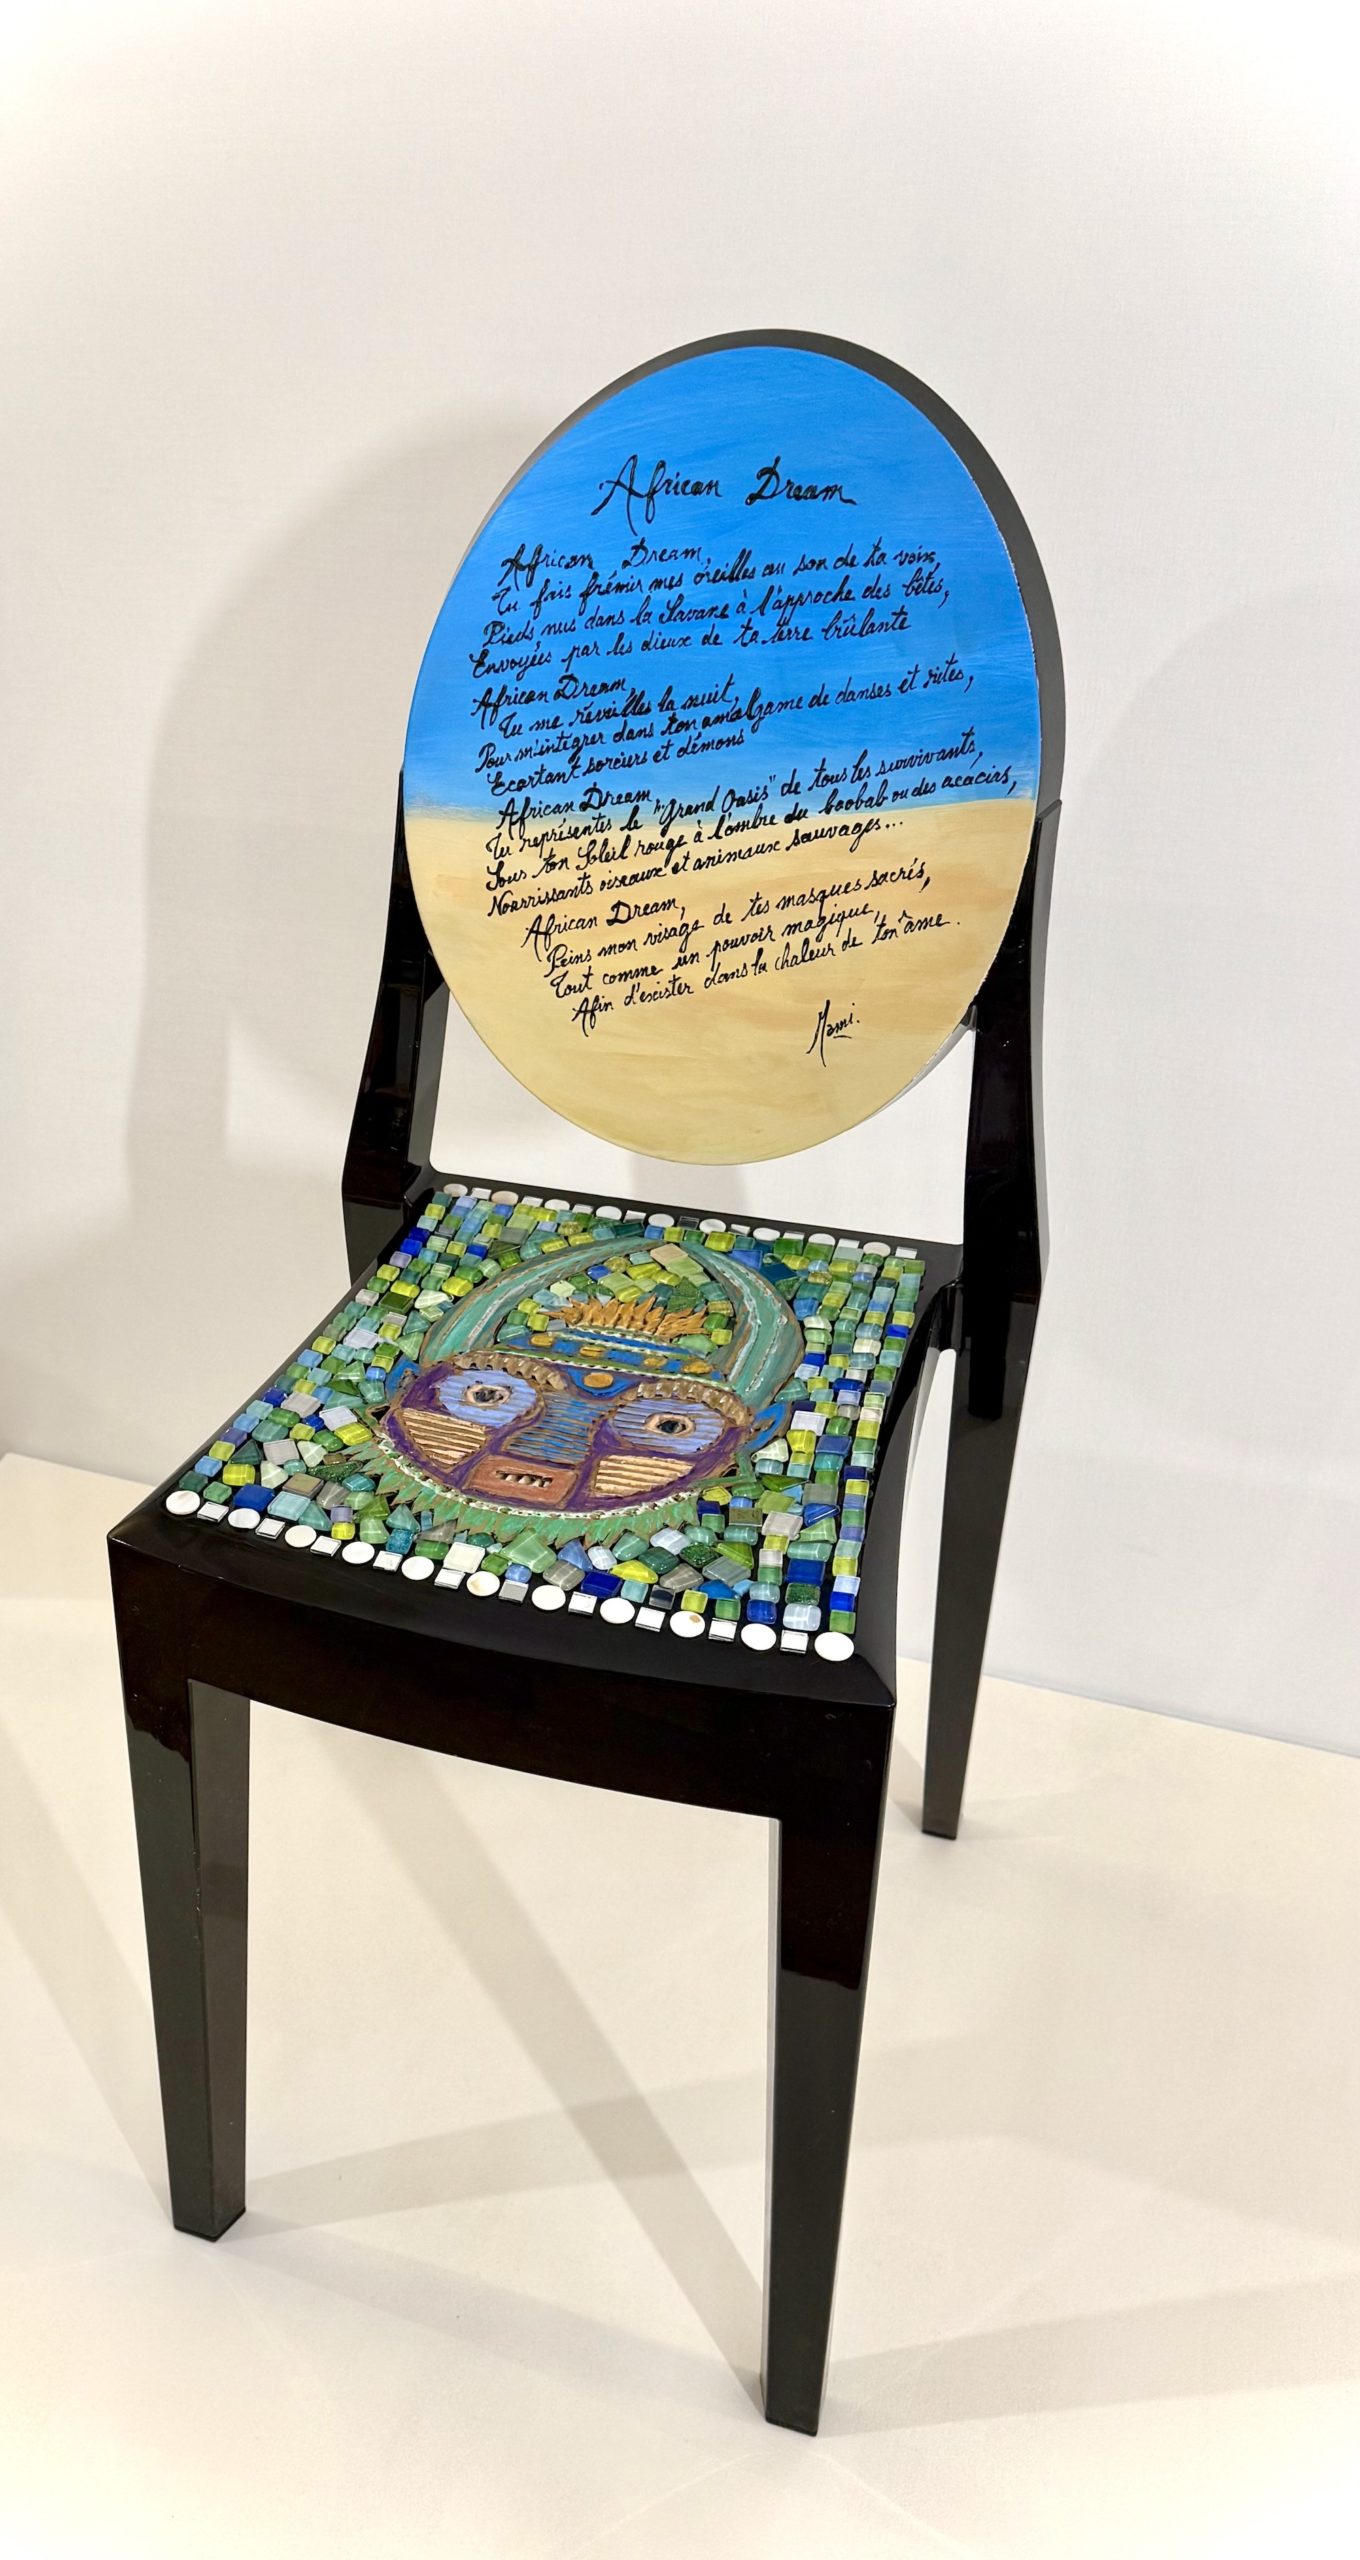 African Dream
African Dream,
Tu fais frémir mes oreilles au son de ta voix,
Pieds nus dans la Savane à l'approche des bêtes,
Envoyées par les dieux de ta terre brûlante
African Dream,
Tu me réveilles la nuit,
Pour m'intégrer dans ton amalgame de danses et rites,
Ecartant sorciers et démons
African Dream,
Tu représentes le "Grand Oasis" de tous les survivants,
Sous ton Soleil rouge à l'ombre du baobab ou des acacias,
Nourrissants oiseaux et animaux sauvages...
African Dream,
Peins mon visage de tes masques sacrés,
Tout comme un pouvoir magique,
Afin d'exister dans la chaleur de ton âme.
Mami.